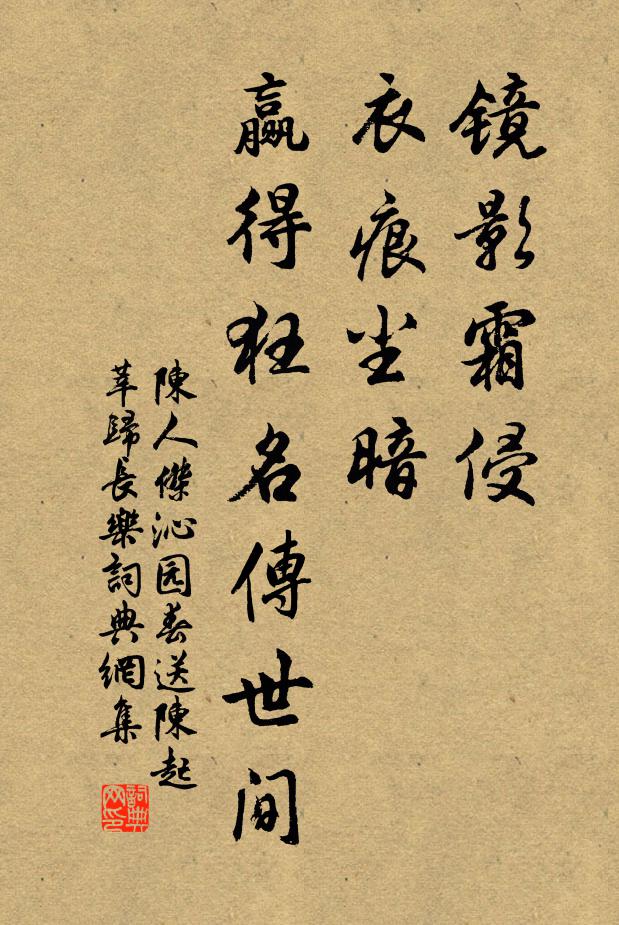 镜影霜侵
衣痕尘暗
赢得狂名傳世间
陳人傑沁园春送陳起
莘歸長樂詞典網集
詞典
网印